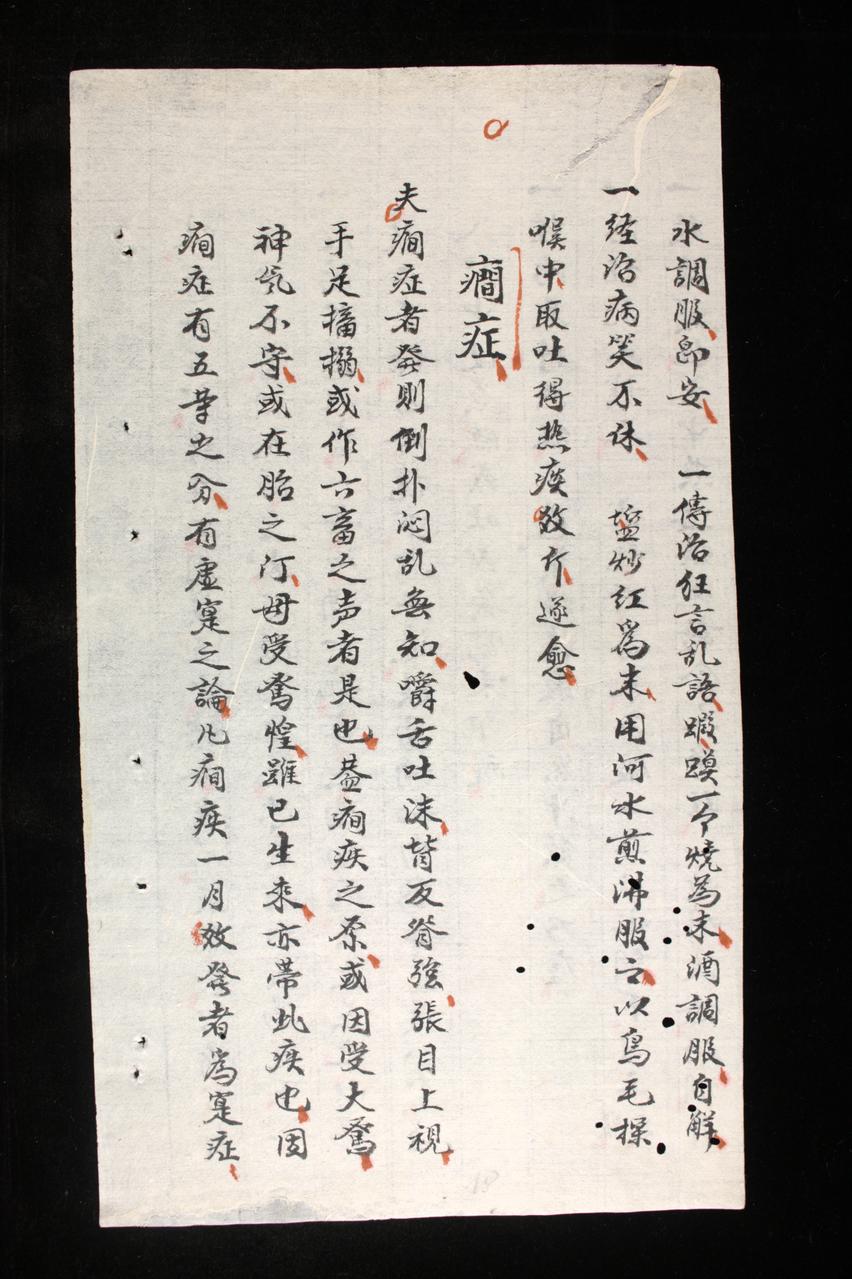 水調服即安 一傳治狂言乱語蝦蟆一个燒為末酒調服自解
一経治病笑不休 塩炒紅為末用河水煎沸服之以鳥毛探
喉中取吐得热痰数斤遂愈
癎症
夫癎症者發則倒扑闷乱無知嚼舌吐沫背反脊强張目上視
手足搐搦或作六畜之声者是也蓋癎疾之原或因受大驚
神気不守或在胎之门母受驚惶雖已生来亦帯此疾也因
癎症有五等之分有虚寔之論凡癎疾一月数發者為寔症
18